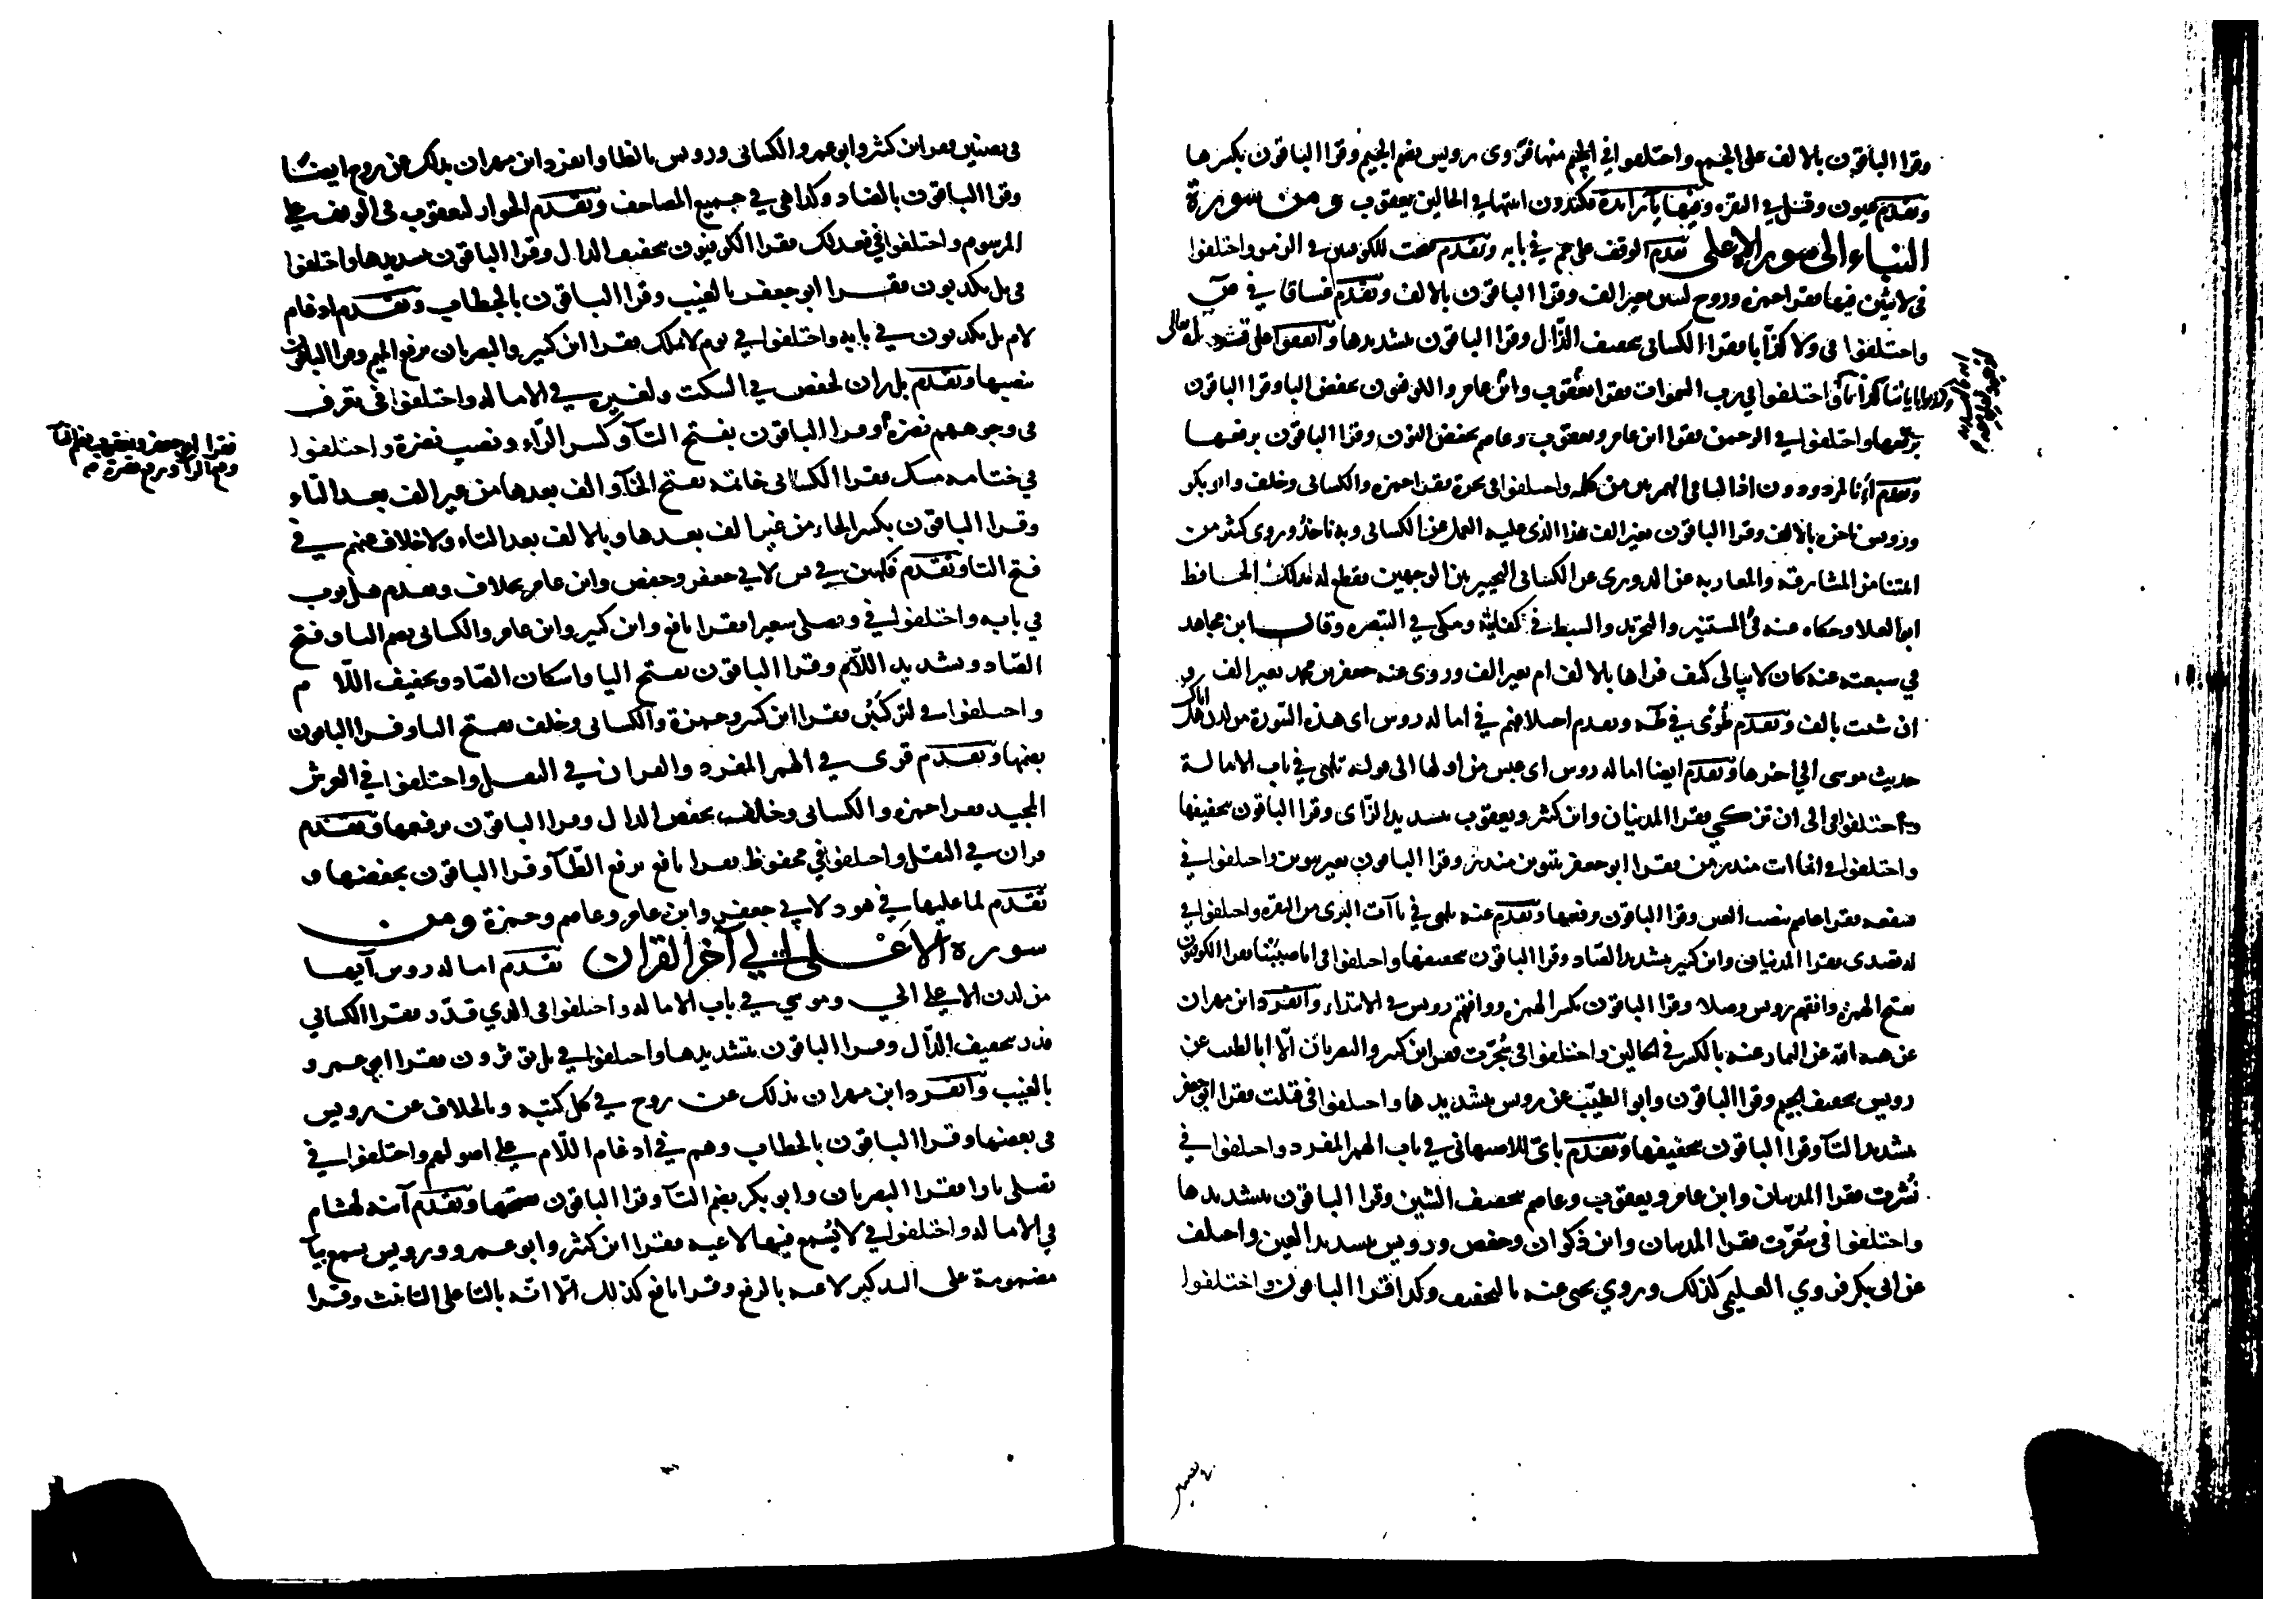 وقرا الباقون بالالف على الجيم واختلفوا في الجيم منها فروى رويس بضم الجيم وقرا الباقون بكسرها
وتقدم عيون وقيل في البقره وفيها يا زايدة فكيدون اثبتها في الحالين يعقوب ومن سورة
النباء الى سورة الاعلى تقدم الوقف على عم في بابه وتقدم فتحت للكوفيين في الزمر واختلفوا
في لابثين فيها فقرا حمزه وروح لبثين بغير الف وقرا الباقون بالالف وتقدم غساقا في ص
واختلفوا في ولا كذابا فقرا الكسائي بتخفيف الذال وقرا الباقون بتشديدها واتفقوا على قوله تعالى
وكذبوا باياتنا كذابا واختلفوا في رب السموات فقرا يعقوب وابن عامر والكوفيون بخفض البا وقرا الباقون
برفعها واختلفوا في الرحمن فقرا ابن عامر ويعقوب وعاصم بخفض النون وقرا الباقون برفعها
وتقدم أئنا لمردودون اذا في الهمزتين من كلمه واختلفوا في نخرة فقرا حمزه والكسائي وخلف وابو بكر
ورويس ناخره بالالف وقرا الباقون بغير الف هذا الذي عليه العمل عن الكسائي وبه ناخذ وروى كثير من
ائمتنا من المشارقه والمغاربه عن الدوري عن الكسائي التخيير بين الوجهين فقطع له بذلك الحافظ
ابو العلا وحكاه عنه في المستنير والتجريد والسبط في كفايته ومكي في التبصره وقال ابن مجاهد
في سبعته عنه كان لا يبالي كيف قراها بالالف ام بغير الف وروى عنه جعفر بن محمد بغير الف و
ان شئت بالف وتقدم طوى في طه وتقدم اختلافهم في اماله روس اى هذه السورة من لدن هل اتاك
حديث موسى الى اخرها وتقدم ايضا اماله روس اى عبس من اولها الى قوله تلهى في باب الامالة
واختلفوا في الى ان تزكى فقرا المدنيان وابن كثير ويعقوب بتشديد الزاى وقرا الباقون بتخفيفها
واختلفوا في انما انت منذر من فقرا ابو جعفر بتنوين منذر وقرا الباقون بغير تنوين واختلفوا في
فتنفعه فقرا عاصم بنصب العين وقرا الباقون برفعها وتقدم عنه تلهى في تاآت البزي من البقره واختلفوا في
له تصدى فقرا المدنيان وابن كثير بتشديد الصاد وقرا الباقون بتخفيفها واختلفوا في انا صببنا فقرا الكوفيون
بفتح الهمزه وافقهم رويس وصلا وقرا الباقون بكسر الهمزه ووافقهم رويس في الابتداء وانفرد ابن مهران
عن هبه الله عن التمار عنه بالكسر في الحالين واختلفوا في سجرت فقرا ابن كثير والبصريان الا ابا الطيب عن
رويس بتخفيف الجيم وقرا الباقون وابو الطيب عن رويس بتشديدها واختلفوا في قتلت فقرا ابو جعفر
بتشديد التا وقرا الباقون بتخفيفها وتقدم باى للاصبهاني في باب الهمز المفرد واختلفوا في
نشرت فقرا المدنيان وابن عامر ويعقوب وعاصم بتخفيف الشين وقرا الباقون بتشديدها
واختلفوا في سعرت فقرا المدنيان وابن ذكوان وحفص ورويس بتشديد العين واختلف
عن ابي بكر فروي العليمي كذلك وروي يحيى عنه بالتخفيف وكذا قرا الباقون واختلفوا
في بضنين فقرا ابن كثير وابو عمرو والكسائي ورويس بالظا وانفرد ابن مهران بذلك عن روح ايضا
وقرا الباقون بالضاد وكذا هي في جميع المصاحف وتقدم الجوار ليعقوب في الوقف على
المرسوم واختلفوا في فعدلك فقرا الكوفيون بتخفيف الدال وقرا الباقون بتشديدها واختلفوا
في بل تكذبون فقرا ابو جعفر بالغيب وقرا الباقون بالخطاب وتقدم ادغام
لام بل تكذبون في بابه واختلفوا في يوم لا تملك فقرا ابن كثير والبصريان برفع الميم وقرا الباقون
بنصبها وتقدم بل ران لحفص في السكت ولغيره في الاماله واختلفوا في تعرف
في وجوههم نضرة فقرا ابو جعفر ويعقوب بضم التآ
وفتح الرآ ورفع نضرة
وقرا الباقون بفتح التآ وكسر الراء ونصب نضرة واختلفوا
في ختامه مسك فقرا الكسائي خاتمه بفتح الخآ والف بعدها من غير الف بعد التاء
وقرا الباقون بكسر الخاء من غير الف بعدها وبالالف بعد التاء ولا خلاف عنهم في
فتح التا وتقدم فكهين في يس لابي جعفر وحفص وابن عامر بخلاف وتقدم هل ثوب
في بابه واختلفوا في ويصلى سعيرا فقرا نافع وابن كثير وابن عامر والكسائي بضم اليا وفتح
الصاد وتشديد اللام وقرا الباقون بفتح اليا واسكان الصاد وتخفيف اللام
واختلفوا في لتركبن فقرا ابن كثير وحمزة والكسائي وخلف بفتح البا وقرا الباقون
بضمها وتقدم قرى في الهمز المفرد والقران في النقل واختلفوا في العرش
المجيد فقرا حمزه والكسائي وخلف بخفض الدال وقرا الباقون برفعها وتقدم
قران في النقل واختلفوا في محفوظ فقرا نافع برفع الظآ وقرا الباقون بخفضها و
تقدم لما عليها في هود لابي جعفر وابن عامر وعاصم وحمزة ومن
سورة الاعلى الي آخر القران تقدم اماله روس آيها
من لدن الاعلى الي وموسي في باب الاماله واختلفوا في الذي قدر فقرا الكسائي
قدر بتخفيف الدال وقرا الباقون بتشديدها واختلفوا في بل تؤثرون فقرا ابو عمرو
بالغيب وانفرد ابن مهران بذلك عن روح في كل كتبه وبالخلاف عن رويس
في بعضها وقرا الباقون بالخطاب وهم في ادغام اللام على اصولهم واختلفوا في
تصلى نارا فقرا البصريان وابو بكر بضم التآ وقرا الباقون بفتحها وتقدم آنية لهشام
في الاماله واختلفوا في لا يسمع فيها لاغية فقرا ابن كثير وابو عمرو ورويس يسمع بيآ
مضمومة على التذكير لاغيه بالرفع وقرا نافع كذلك الا انه بالتا على التانيث وقرا